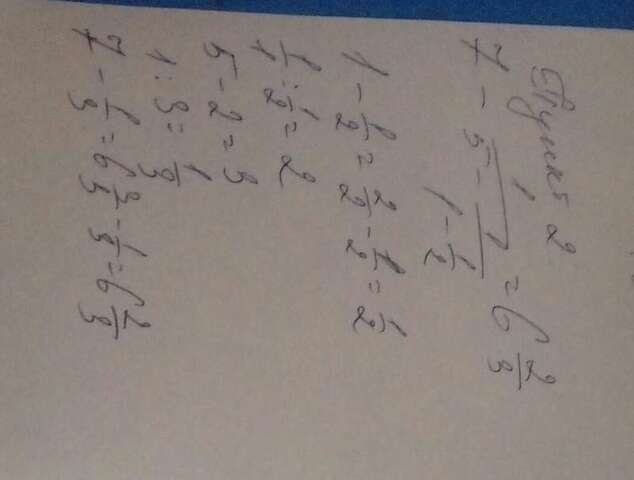 Пункт 2
7 - 1/(5 - 1/(1 - 1/2)) = 6 2/3
1 - 1/2 = 2/2 - 1/2 = 1/2
1/1 : 1/2 = 2
5 - 2 = 3
1 : 3 = 1/3
7 - 1/3 = 6 3/3 - 1/3 = 6 2/3